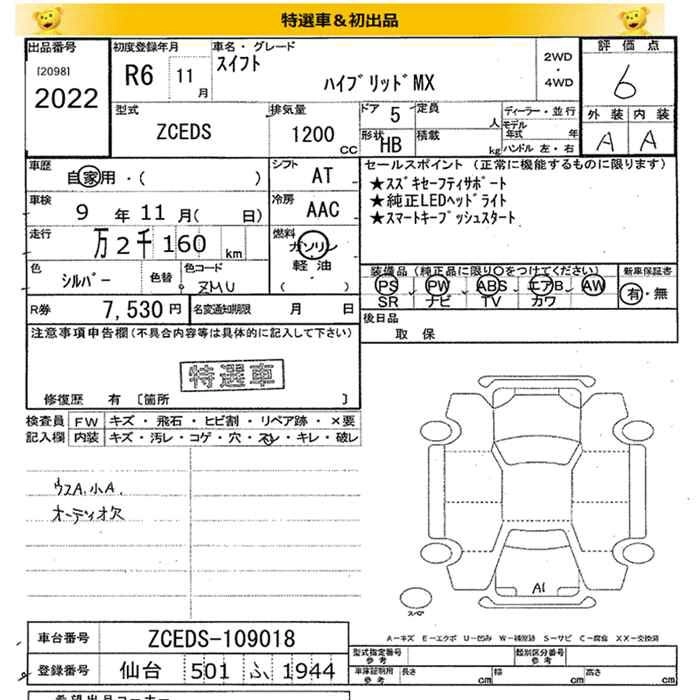 特選車＆初出品
出品番号 初度登録年月 車名・グレード 評価点
[2098] R6 11月 スイフト ハイブリッドMX 2WD・4WD 6
2022
型式 排気量 ドア 5 定員 人 ディーラー・並行 外装 内装
ZCEDS 1200 CC 形状 HB 積載 kg モデル年式 年 A A
ハンドル 左・右
車歴 自家用・( ) シフト AT セールスポイント (正常に機能するものに限ります)
車検 9年11月( 日) 冷房 AAC ★スズキセーフティサポート
★純正LEDヘッドライト
★スマートキープッシュスタート
走行 万2千160km 燃料 ガソリン
軽油
( )
色 シルバー 色替 色コード ZMU
装備品 (純正品に限り○をつけてください) 新車保証書
PS PW ABS エアB AW 有・無
SR ナビ TV カワ
R券 7,530円 名変通知期限 月 日
後日品
取保
注意事項申告欄(不具合内容等は具体的に記入して下さい)
特選車
修復歴 有 [箇所 ]
検査員 FW キズ・飛石・ヒビ割・リペア跡・×要
記入欄 内装 キズ・汚レ・コゲ・穴・スレ・キレ・破レ
ウスA,小A,
オーディオ欠
A1
スペア
A-キズ E-エクボ U-凹み W-補修跡 S-サビ C-腐食 XX-交換済
車台番号 ZCEDS-109018
型式指定番号 参考 類別区分番号 参考
登録番号 仙台 501 ふ 1944
車庫証明用 参考 長さ cm 幅 cm 高さ cm
希望出品コーナー